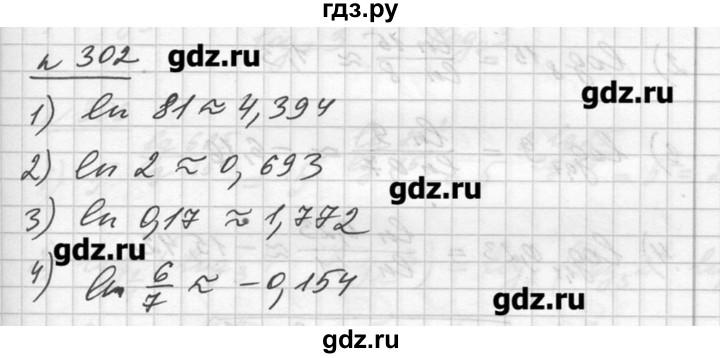 гдз.ру
№ 302 gdz.ru
1) ln 81 ≈ 4,394
gdz.ru
2) ln 2 ≈ 0,693
gdz.ru
3) ln 0,17 ≈ 1,772
gdz.ru
4) ln 6/7 ≈ -0,154
gdz.ru
gdz.ru